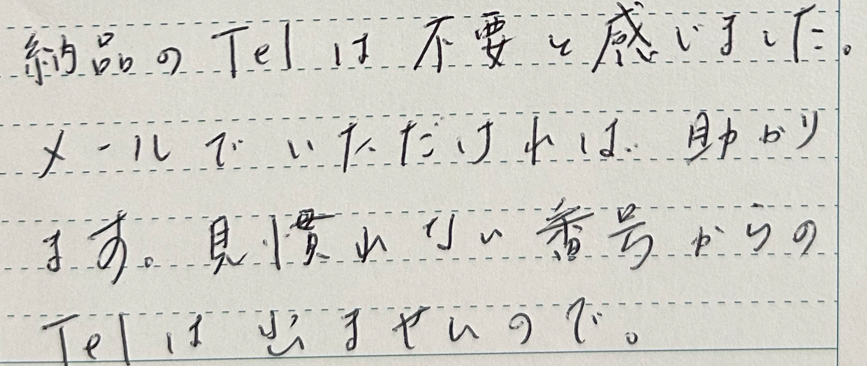 納品のTelは不要と感じました。
メールでいただければ助かり
ます。見慣れない番号からの
Telは出ませんので。